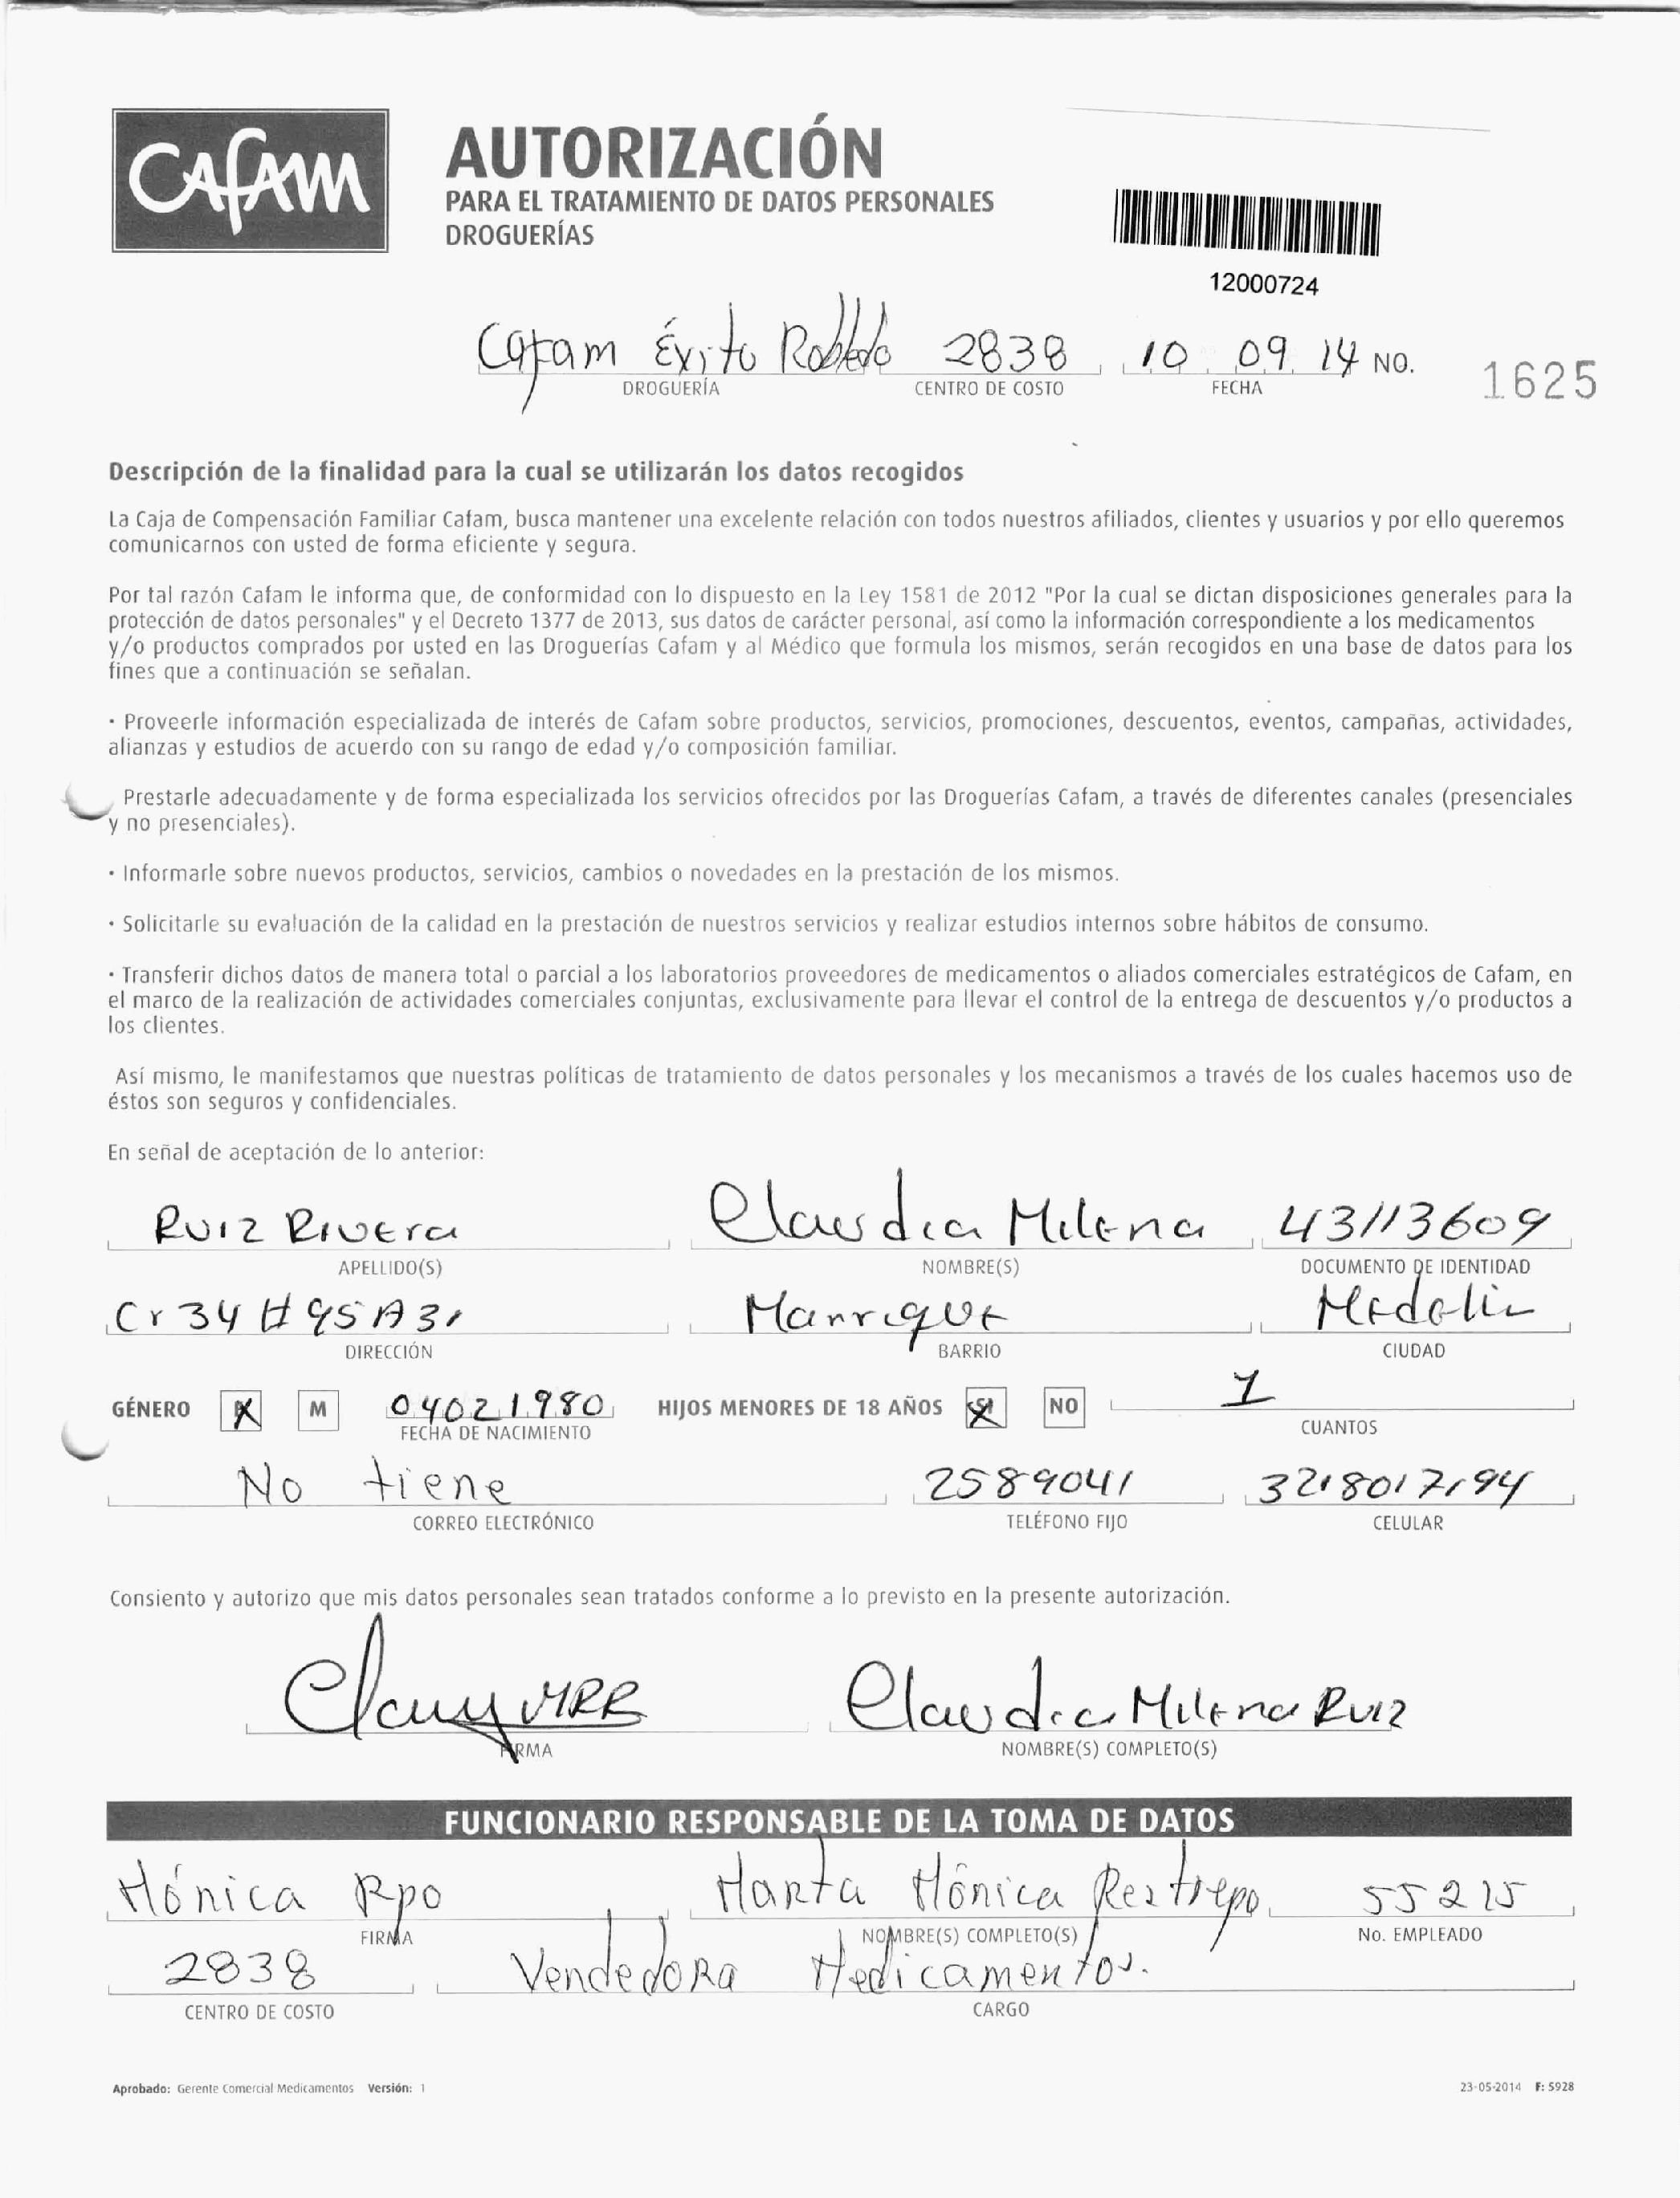 CAFAM
AUTORIZACIÓN
PARA EL TRATAMIENTO DE DATOS PERSONALES
DROGUERÍAS
12000724
Cafam Éxito Robledo 2838 10 09 14 NO. 1625
DROGUERÍA CENTRO DE COSTO FECHA
Descripción de la finalidad para la cual se utilizarán los datos recogidos
La Caja de Compensación Familiar Cafam, busca mantener una excelente relación con todos nuestros afiliados, clientes y usuarios y por ello queremos
comunicarnos con usted de forma eficiente y segura.
Por tal razón Cafam le informa que, de conformidad con lo dispuesto en la Ley 1581 de 2012 "Por la cual se dictan disposiciones generales para la
protección de datos personales" y el Decreto 1377 de 2013, sus datos de carácter personal, así como la información correspondiente a los medicamentos
y/o productos comprados por usted en las Droguerías Cafam y al Médico que formula los mismos, serán recogidos en una base de datos para los
fines que a continuación se señalan.
• Proveerle información especializada de interés de Cafam sobre productos, servicios, promociones, descuentos, eventos, campañas, actividades,
alianzas y estudios de acuerdo con su rango de edad y/o composición familiar.
Prestarle adecuadamente y de forma especializada los servicios ofrecidos por las Droguerías Cafam, a través de diferentes canales (presenciales
y no presenciales).
• Informarle sobre nuevos productos, servicios, cambios o novedades en la prestación de los mismos.
• Solicitarle su evaluación de la calidad en la prestación de nuestros servicios y realizar estudios internos sobre hábitos de consumo.
• Transferir dichos datos de manera total o parcial a los laboratorios proveedores de medicamentos o aliados comerciales estratégicos de Cafam, en
el marco de la realización de actividades comerciales conjuntas, exclusivamente para llevar el control de la entrega de descuentos y/o productos a
los clientes.
Así mismo, le manifestamos que nuestras políticas de tratamiento de datos personales y los mecanismos a través de los cuales hacemos uso de
éstos son seguros y confidenciales.
En señal de aceptación de lo anterior:
Ruiz Rivera Claudia Milena 43113609
APELLIDO(S) NOMBRE(S) DOCUMENTO DE IDENTIDAD
Cr 34 # 95 A 31 Manrique Medelin
DIRECCIÓN BARRIO CIUDAD
GÉNERO X M 04021980 HIJOS MENORES DE 18 AÑOS SI NO 1
FECHA DE NACIMIENTO CUANTOS
No tiene 2589041 3218017194
CORREO ELECTRÓNICO TELÉFONO FIJO CELULAR
Consiento y autorizo que mis datos personales sean tratados conforme a lo previsto en la presente autorización.
MRR Claudia Milena Ruiz
FIRMA NOMBRE(S) COMPLETO(S)
FUNCIONARIO RESPONSABLE DE LA TOMA DE DATOS
Mónica Rpo Marta Mónica Restrepo 55215
FIRMA NOMBRE(S) COMPLETO(S) No. EMPLEADO
2838 Vendedora Medicamentos.
CENTRO DE COSTO CARGO
Aprobado: Gerente Comercial Medicamentos Versión: 1 23-05-2014 F: 5928